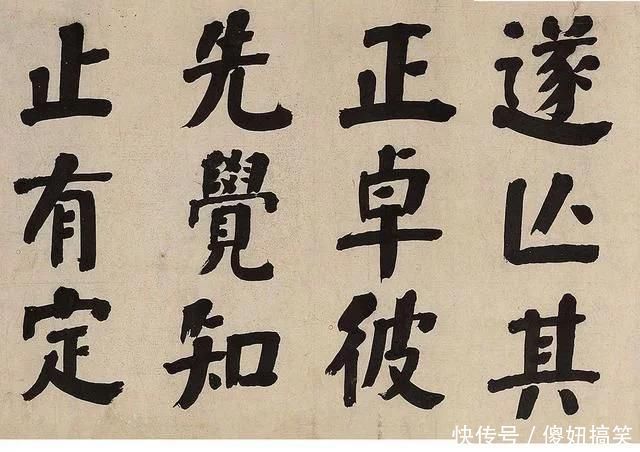 遂亡其
正卓彼
先覺知
止有定
快传号/傻妞搞笑